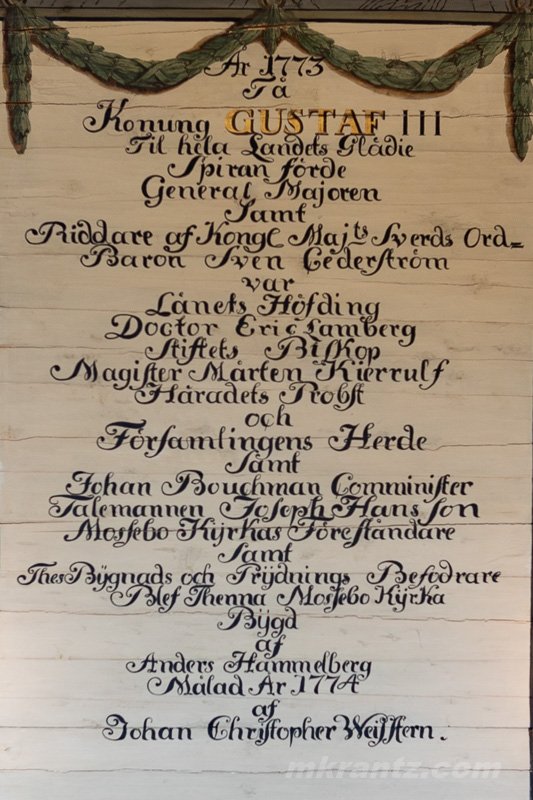 År 1773
Tå
Konung GUSTAF III
Til hela Landets Glädie
Spiran förde
General Majoren
Samt
Riddare af Kongl Maj:ts Sverds Ord=
Baron Sven Cederström
var
Länets Höfding
Doctor Eric Lamberg
Stiftets Biſkop
Magiſter Mårten Kierrulf
Häradets Probſt
och
Förſamlingens Herde
Samt
Johan Bouchman Comminiſter
Talemannen Joſeph Hansſon
Mosſebo Kÿrkas Föreſtåndare
Samt
Thes Bÿgnads och Prÿdnings Befodrare
Blef Thenna Mosſebo Kÿrka
Bÿgd
af
Anders Hammelberg
Målad År 1774
af
Johan Chriſtopher Weisſtern.
mkrantz.com